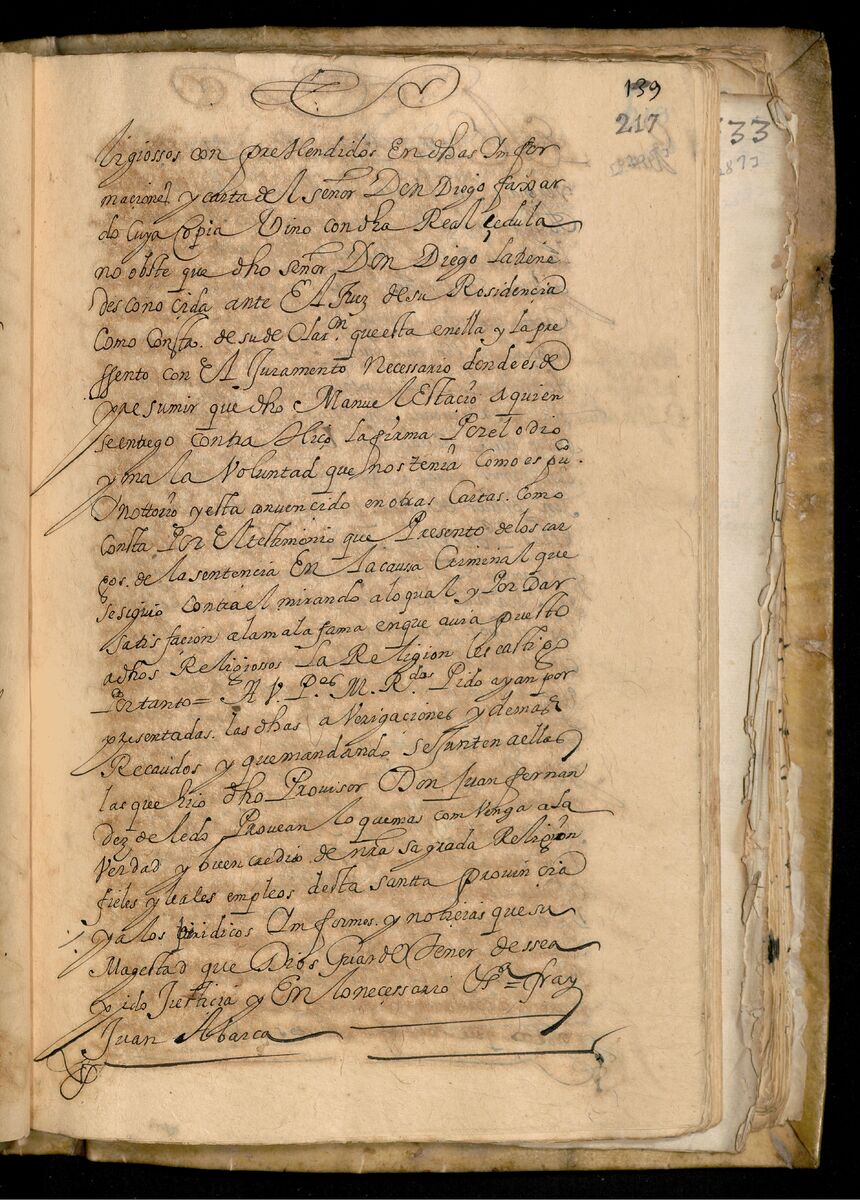 139
217
33
1877
ligiossos con preHendidos En dhas Infor
maciones y carta del señor Don Diego faxar
do Cuya Copia Vino con dha Real cedula
no obste que dho señor Don Diego la tiene
desconocida ante El Juez desu Rosidencia
Como Consta. desude Claron. que esta enella y la pre
ssento con El Juramento Necessario donde es de
presumir que dho Manuel Estacio a quien
se entrego Contra Hiço la firma Por el odio
y ma la Voluntad que nos tenia Como es pu.co
Nottorio y esta convencido en otras Cartas. Como
Consta Por El testimonio que Presento de los car
gos. de la sentencia En la causa Criminal que
se siguio contra el mirando a lo qual y Por Dar
satisfacion a la mala fama en que avia puesto
a dhos Religiossos La Religion les castigo
Por tanto= A V. P.es M. R.das Pido ayan por
presentadas. las dhas a Verigaciones y demas
Recaudos y que mandando se Junten a ellas
las que hiço dho Provisor Don Juan fernan
dez de ledo Provean lo que mas com Venga a la
Verdad y buen credio de nra sagrada Religion
fieles y leales empleos desta santta provincia
y a los piridicos Informes. y noticias que su
Magestad que Dios Guarde Thener dessea
pido Justicia y En lo necessario &a= fray
Juan Abarca